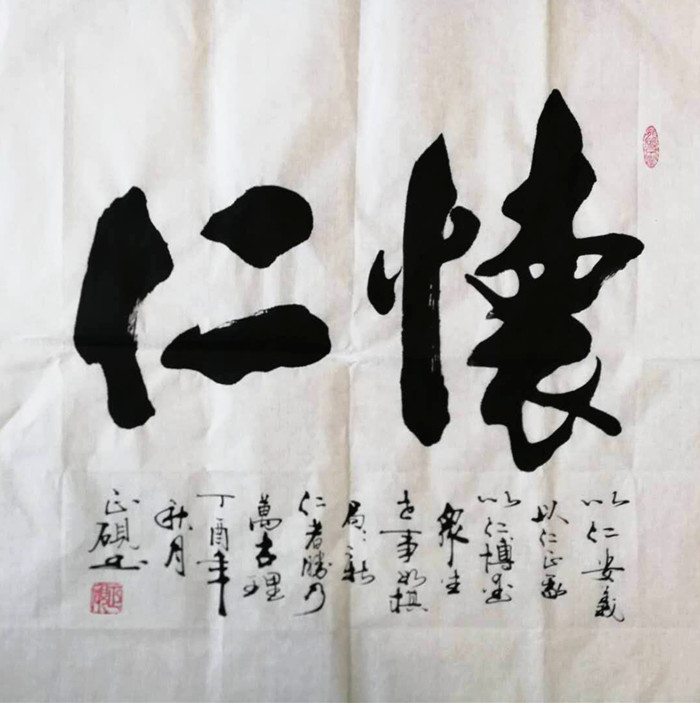 懷仁
以仁安義
以仁正我
以仁博愛
眾生
世事如棋
局:新
仁者勝乃
萬古理
丁酉年
秋月
正硯书